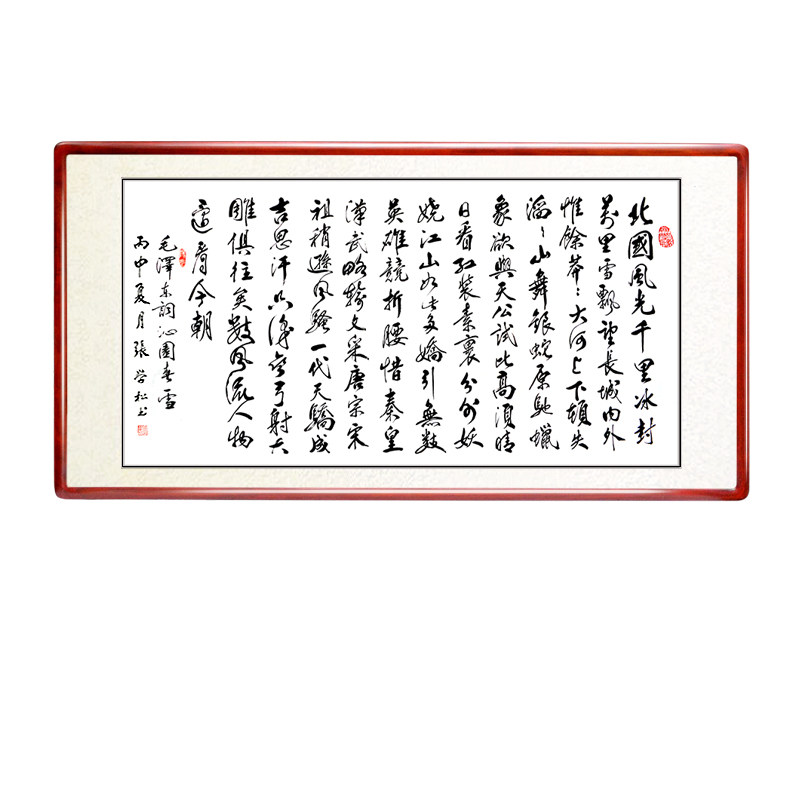 北國風光千里冰封
萬里雪飄望長城内外
惟餘莽〻大河上下頓失
滔〻山舞銀蛇原馳蠟
象欲與天公試比高須晴
日看紅装素裹分外妖
嬈江山如此多嬌引無數
英雄競折腰惜秦皇
漢武略輸文采唐宗宋
祖稍遜風騷一代天驕成
吉思汗只識彎弓射大
雕俱往矣數風流人物
還看今朝
毛澤東詞沁園春雪
丙申夏月張学松书